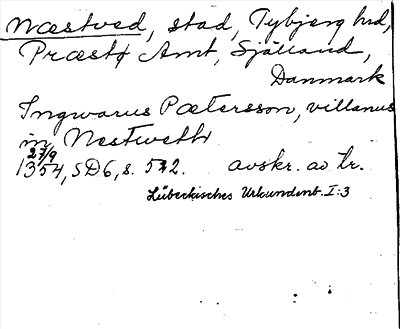 Næstved, stad, Tybjerg hrd,
Præstø Amt, Själland,
Danmark
Ingwarus Pætersson, villanus
in Nestweth
27/9
1354, SD6, s. 572. avskr. av tr.
Lübeckisches Urkundenb. I:3